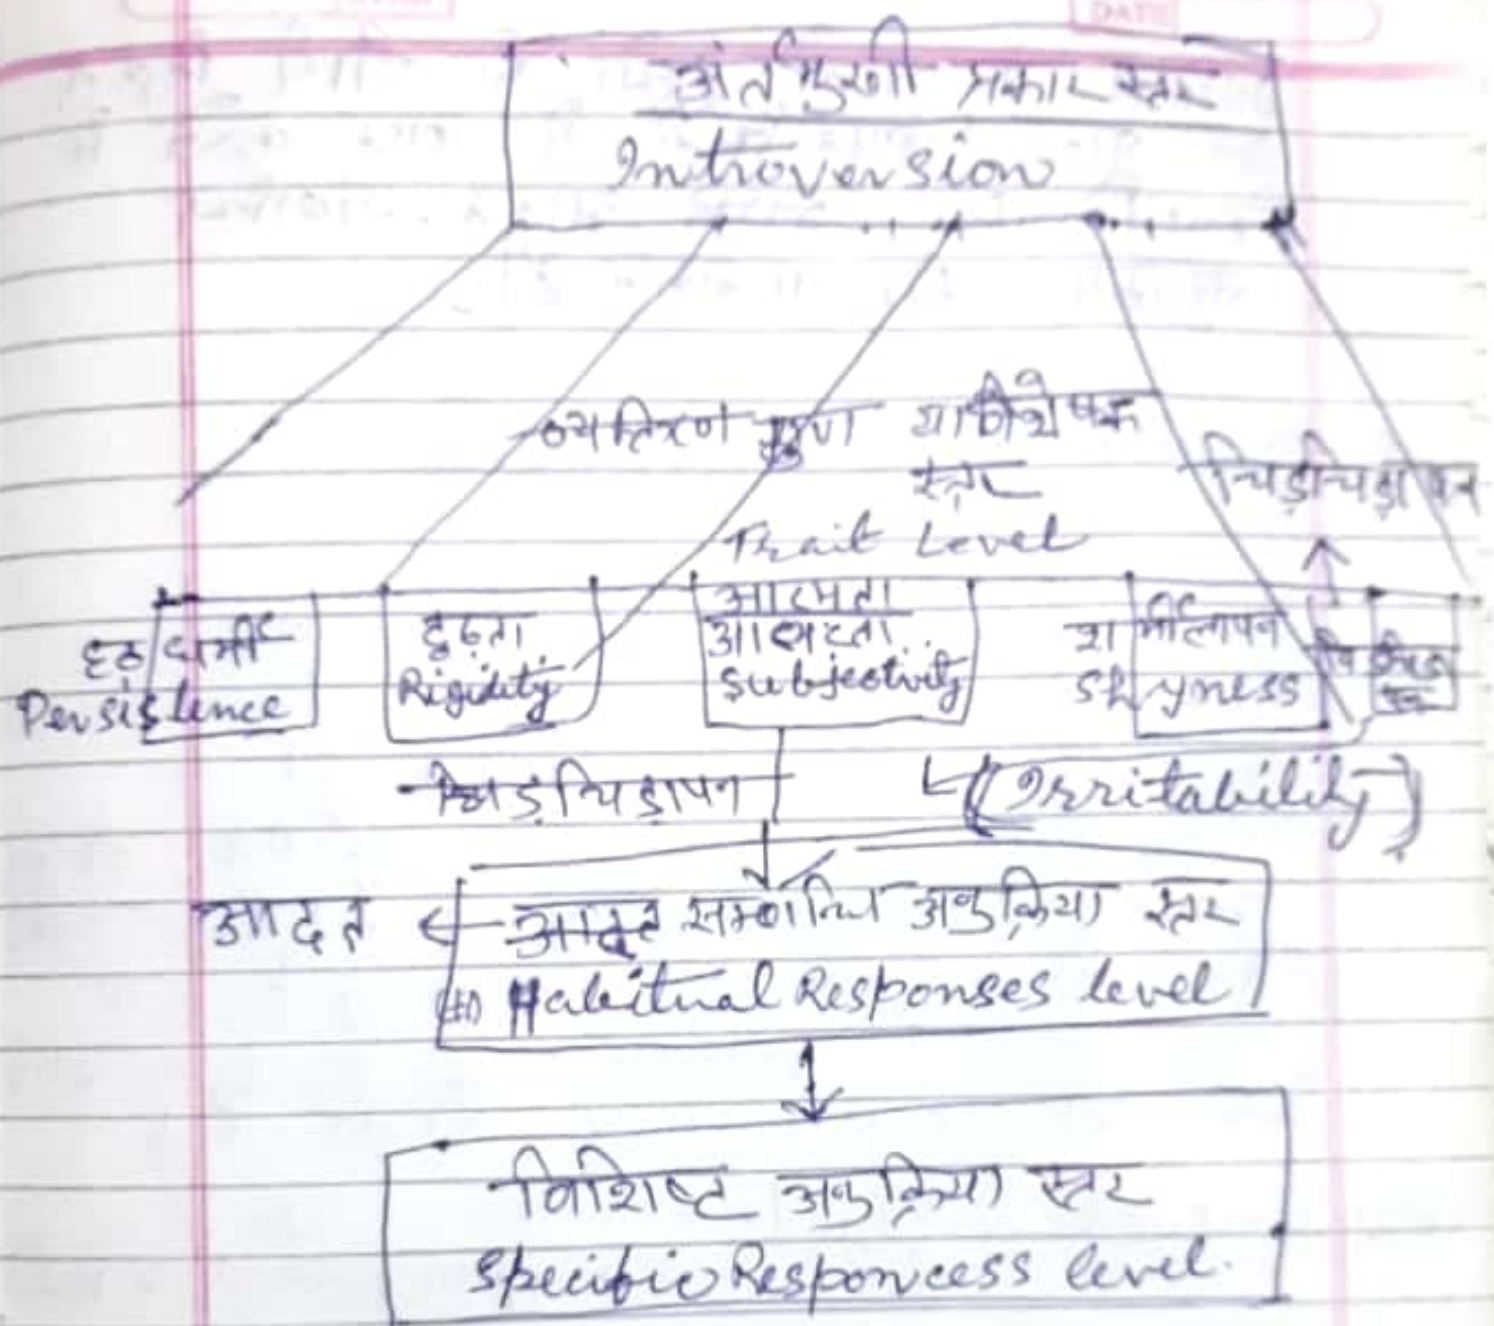 DATE
अंर्तमुखी प्रकार स्तर
Introversion
गुण या विशेषक
स्तर
Trait Level
चिड़चिड़ापन
हठ धर्मी
Persistence
दृढ़ता
Rigidity
आत्मता
Subjectivity
शर्मीलापन
Shyness
चिड़चिड़ापन
(Irritability)
आदत
आदत सम्बन्धित अनुक्रिया स्तर
Habitual Responses level
विशिष्ट अनुक्रिया स्तर
Specific Responcess level.